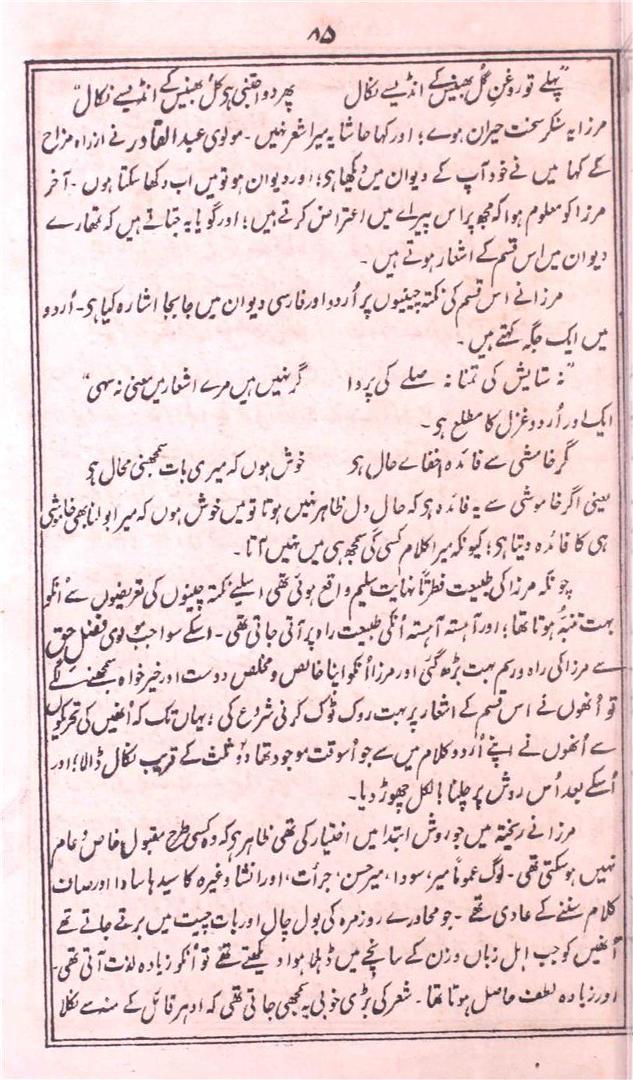 ۸۵
"پہلے تو روغنِ گُل بھینس کے انڈے سے نکال     پھر دوا جتنی ہی کُل بھینس کے انڈے سے نکال"
مرزا یہ سنکر سخت حیران ہوے؛ اور کہا حاشا یہ میرا شعر نہیں۔ مولوی عبد القادر نے از راہ مزاح
کے کہا میں نے خود آپ کے دیوان میں دیکھا ہی؛ اور دیوان ہو تو میں اب دکھا سکتا ہوں۔ آخر
مرزا کو معلوم ہوا کہ مجھ پر اس پیراے میں اعتراض کرتے ہیں؛ اور گویا یہ جتاتے ہیں کہ تمھارے
دیوان میں اس قسم کے اشعار ہوتے ہیں۔
مرزا نے اس قسم کی نکتہ چینیوں پر اُردو اور فارسی دیوان میں جابجا اشارہ کیا ہی۔ اُردو
میں ایک جگہ کہتے ہیں۔
"نہ ستایش کی تمنا نہ صلے کی پروا     گر نہیں ہیں مرے اشعار میں معنی نہ سہی"
ایک اور اُردو غزل کا مطلع ہی۔
گر خامشی سے فائدہ اخفاے حال ہی     خوش ہوں کہ میری بات سمجھنی محال ہی
یعنی اگر خاموشی سے یہ فائدہ ہی کہ حالِ دل ظاہر نہیں ہوتا تو میں خوش ہوں کہ میرا بولنا بھی خاموشی
ہی کا فائدہ دیتا ہی؛ کیونکہ میرا کلام کسی کی سمجھ ہی میں نہیں آتا۔
چونکہ مرزا کی طبیعت فطرتاً نہایت سلیم واقع ہوئی تھی اسلیے نکتہ چینوں کی تعریضوں سے اُنکو
بہت تنبّہ ہوتا تھا؛ اور آہستہ آہستہ اُنکی طبیعت راہ پر آتی جاتی تھی۔ اسکے سوا جب مولوی فضلِ حق
سے مرزا کی راہ و رسم بہت بڑھ گئی اور مرزا اُنکو اپنا خالص و مخلص دوست اور خیر خواہ سمجھنے لگے
تو اُنھوں نے اس قسم کے اشعار پر بہت روک ٹوک کرنی شروع کی؛ یہاں تک کہ اُنھیں کی تحریک
سے اُنھوں نے اپنے اُردو کلام میں سے جو اُسوقت موجود تھا دو ثلث کے قریب نکال ڈالا؛ اور
اُسکے بعد اُس روش پر چلنا بالکل چھوڑ دیا۔
مرزا نے ریختہ میں جو روش ابتدا میں اختیار کی تھی ظاہر ہی کہ وہ کسی طرح مقبولِ خاص و عام
نہیں ہو سکتی تھی۔ لوگ عموماً میر، سودا، میر حسن، جرأت، اور انشا وغیرہ کا سیدھا سادا اور صاف
کلام سننے کے عادی تھے۔ جو محاورے روزمرہ کی بول چال اور بات چیت میں برتے جاتے تھے
اُنھیں کو جب اہل زباں وزن کے سانچے میں ڈھلا ہوا دیکھتے تھے تو اُنکو زیادہ لذت آتی تھی۔
اور زیادہ لطف حاصل ہوتا تھا۔ شعر کی بڑی خوبی یہ سمجھی جاتی تھی کہ ادھر قائل کے منہ سے نکلا